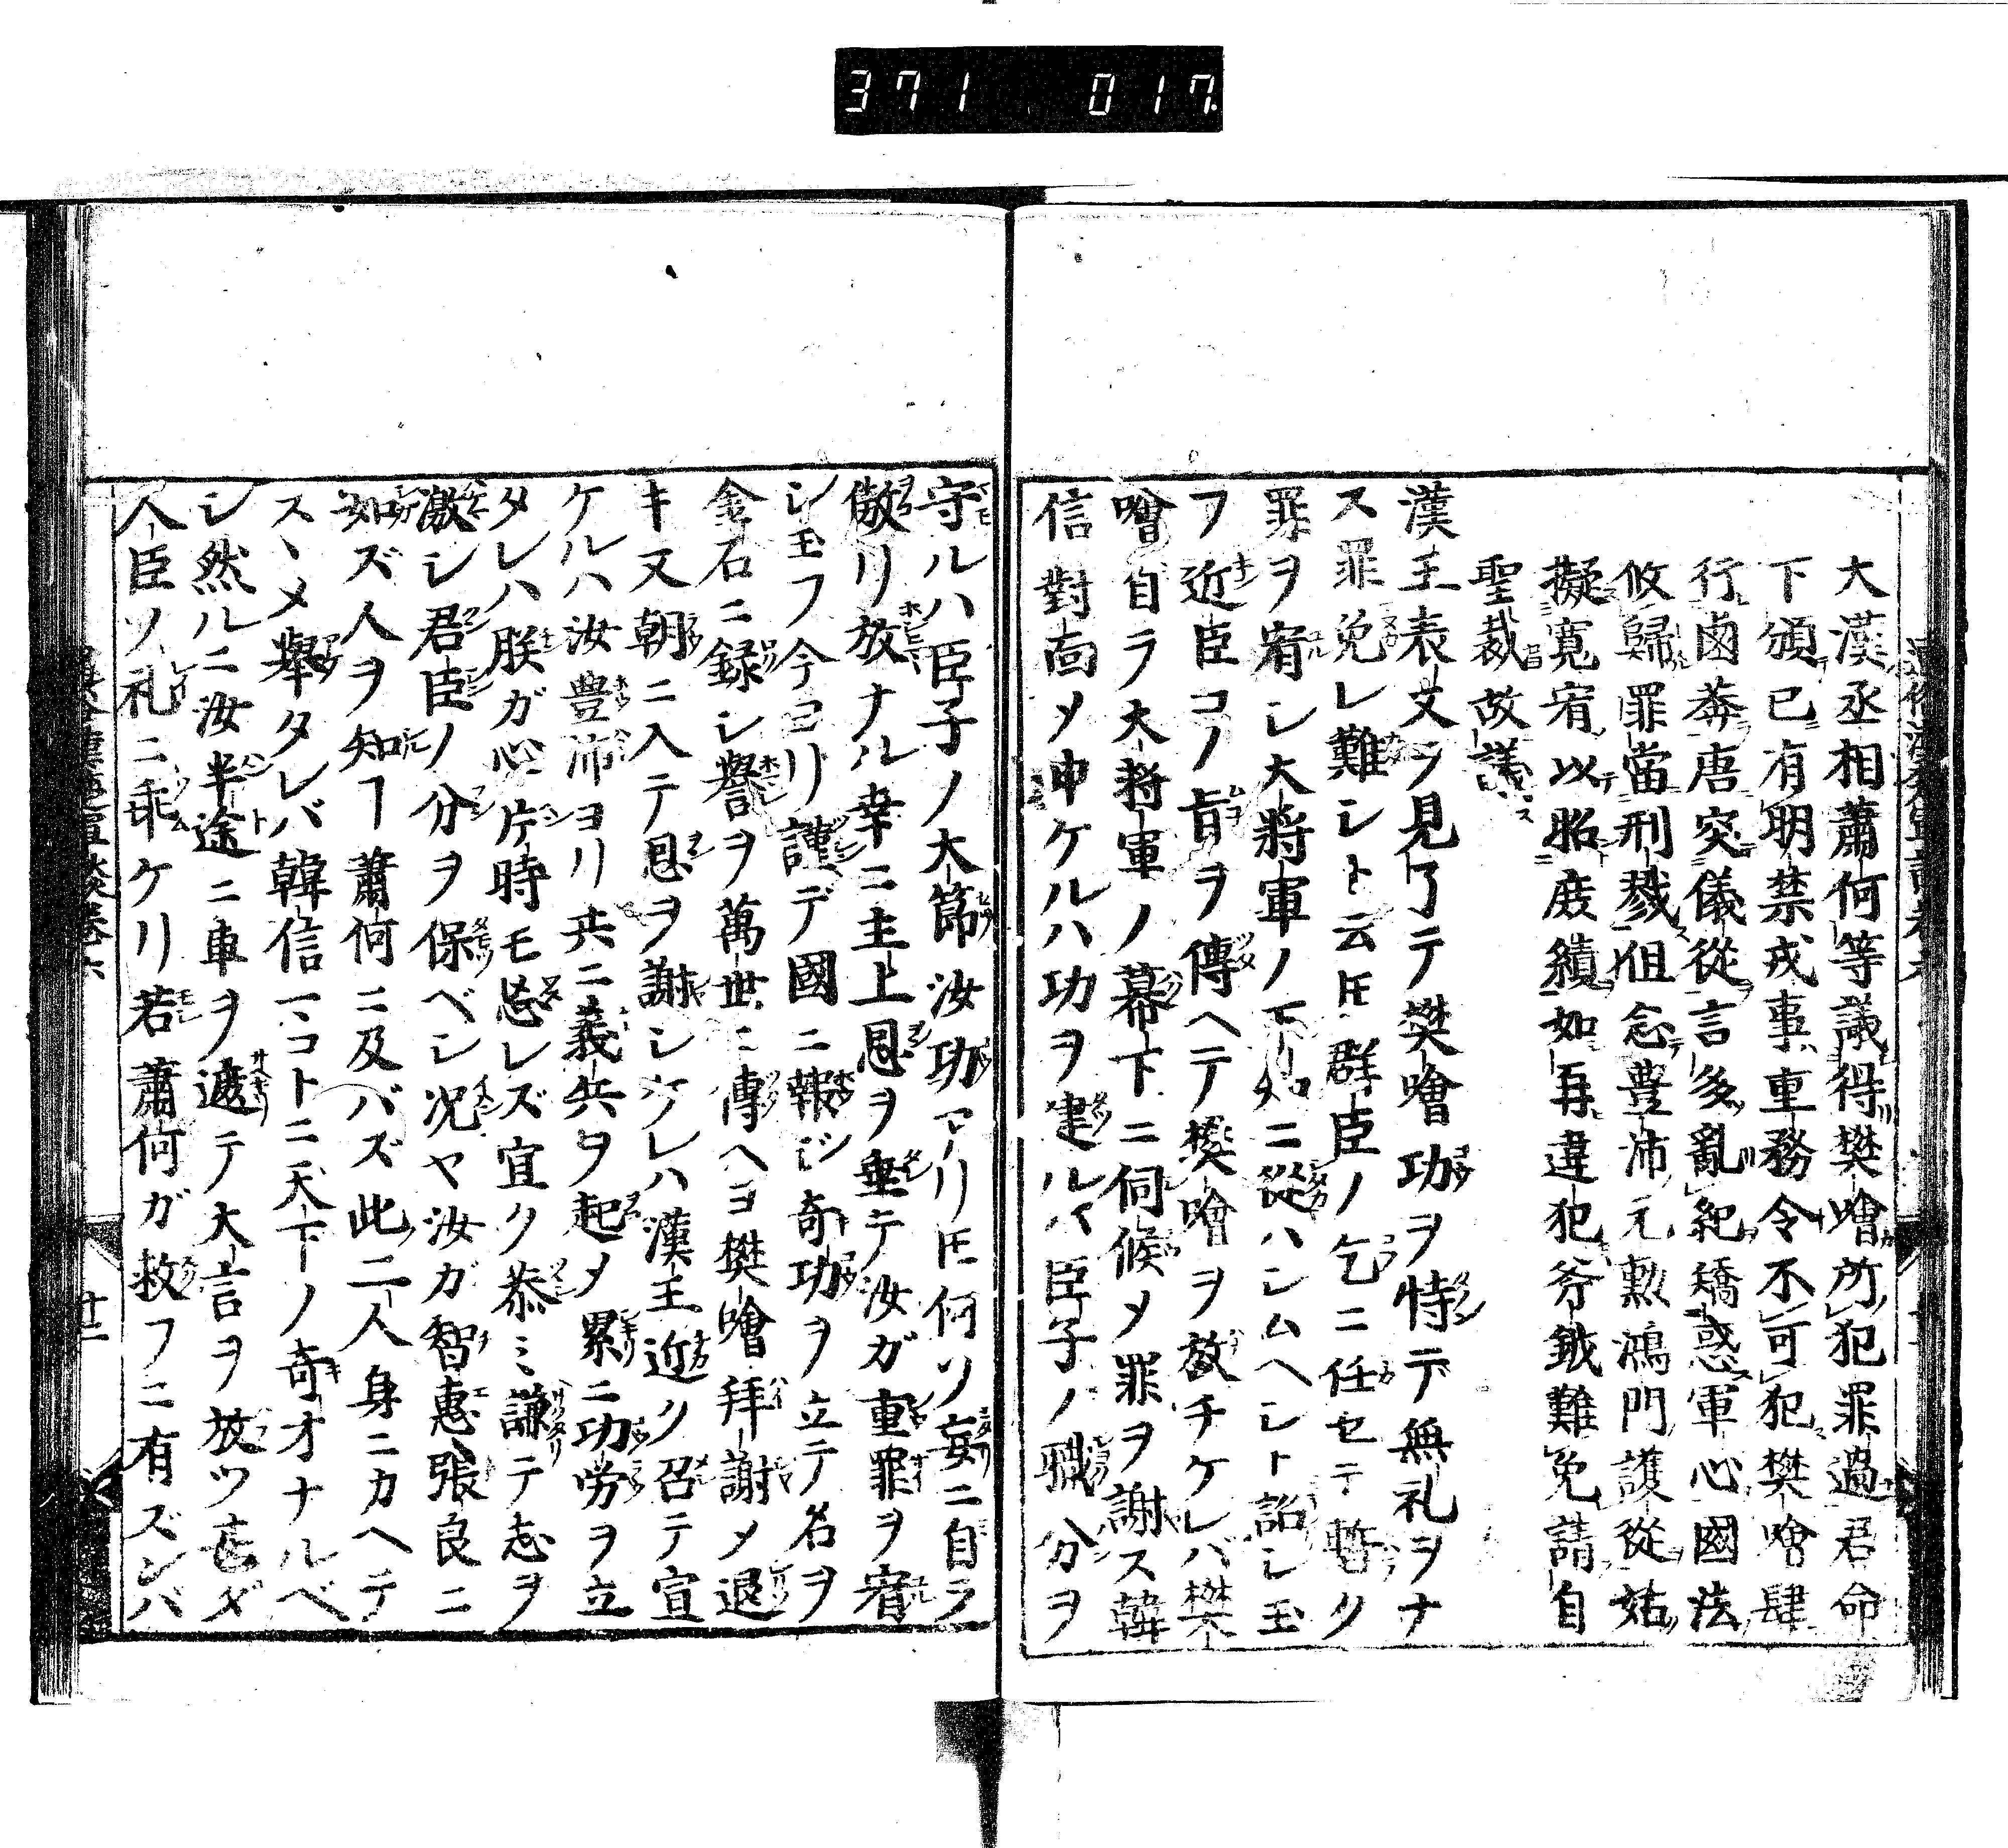 371 017
大漢丞相蕭何等議得樊噲所犯罪過君命
下頒已有明禁戎事重務令不可犯樊噲肆
行鹵莽唐突儀從言多亂紀矯惑軍心國法
攸歸罪當刑戮但念豊沛元勲鴻門護從姑
擬寛宥以昭庋績如再違犯斧鉞難免請自
聖裁故議
漢王表文ヲ見了テ樊噲功ヲ恃デ無礼ヲナ
ス罪免レ難シト云𪜈群臣ノ乞ニ任セテ暫ク
罪ヲ宥シ大將軍ノ下知ニ從ハシムヘシト詔シ玉
フ近臣コノ旨ヲ傳ヘテ樊噲ヲ放チケレバ樊
噲自ラ大將軍ノ幕下ニ伺候メ罪ヲ謝ス韓
信對面メ申ケルハ功ヲ建ルハ臣子ノ職分ヲ
守ルハ臣子ノ大節汝功アリ𪜈何ソ妄ニ自ラ
傲リ放ナル幸ニ主上恩ヲ垂テ汝ガ重罪ヲ宥
シ玉フ今ヨリ謹デ國ニ報ジ奇功ヲ立テ名ヲ
金石ニ録シ譽ヲ萬世ニ傳ヘヨ樊噲拜謝メ退
キ又朝ニ入テ恩ヲ謝シケレハ漢王近ク召テ宣
ケルハ汝豊沛ヨリ共ニ義兵ヲ起メ累ニ功労ヲ立
タレハ朕ガ心片時モ忘レズ宜ク恭ミ謙テ志ヲ
激シ君臣ノ分ヲ保ベシ况ヤ汝ガ智惠張良ニ
如ズ人ヲ知ヿ蕭何ニ及バズ此二人身ニカヘテ
スヽメ舉タレバ韓信マコトニ天下ノ奇才ナルベ
シ然ルニ汝半途ニ車ヲ遮テ大言ヲ放ツ甚ダ
人臣ノ礼ニ乖ケリ若蕭何ガ救フニ有ズンバ
廿一